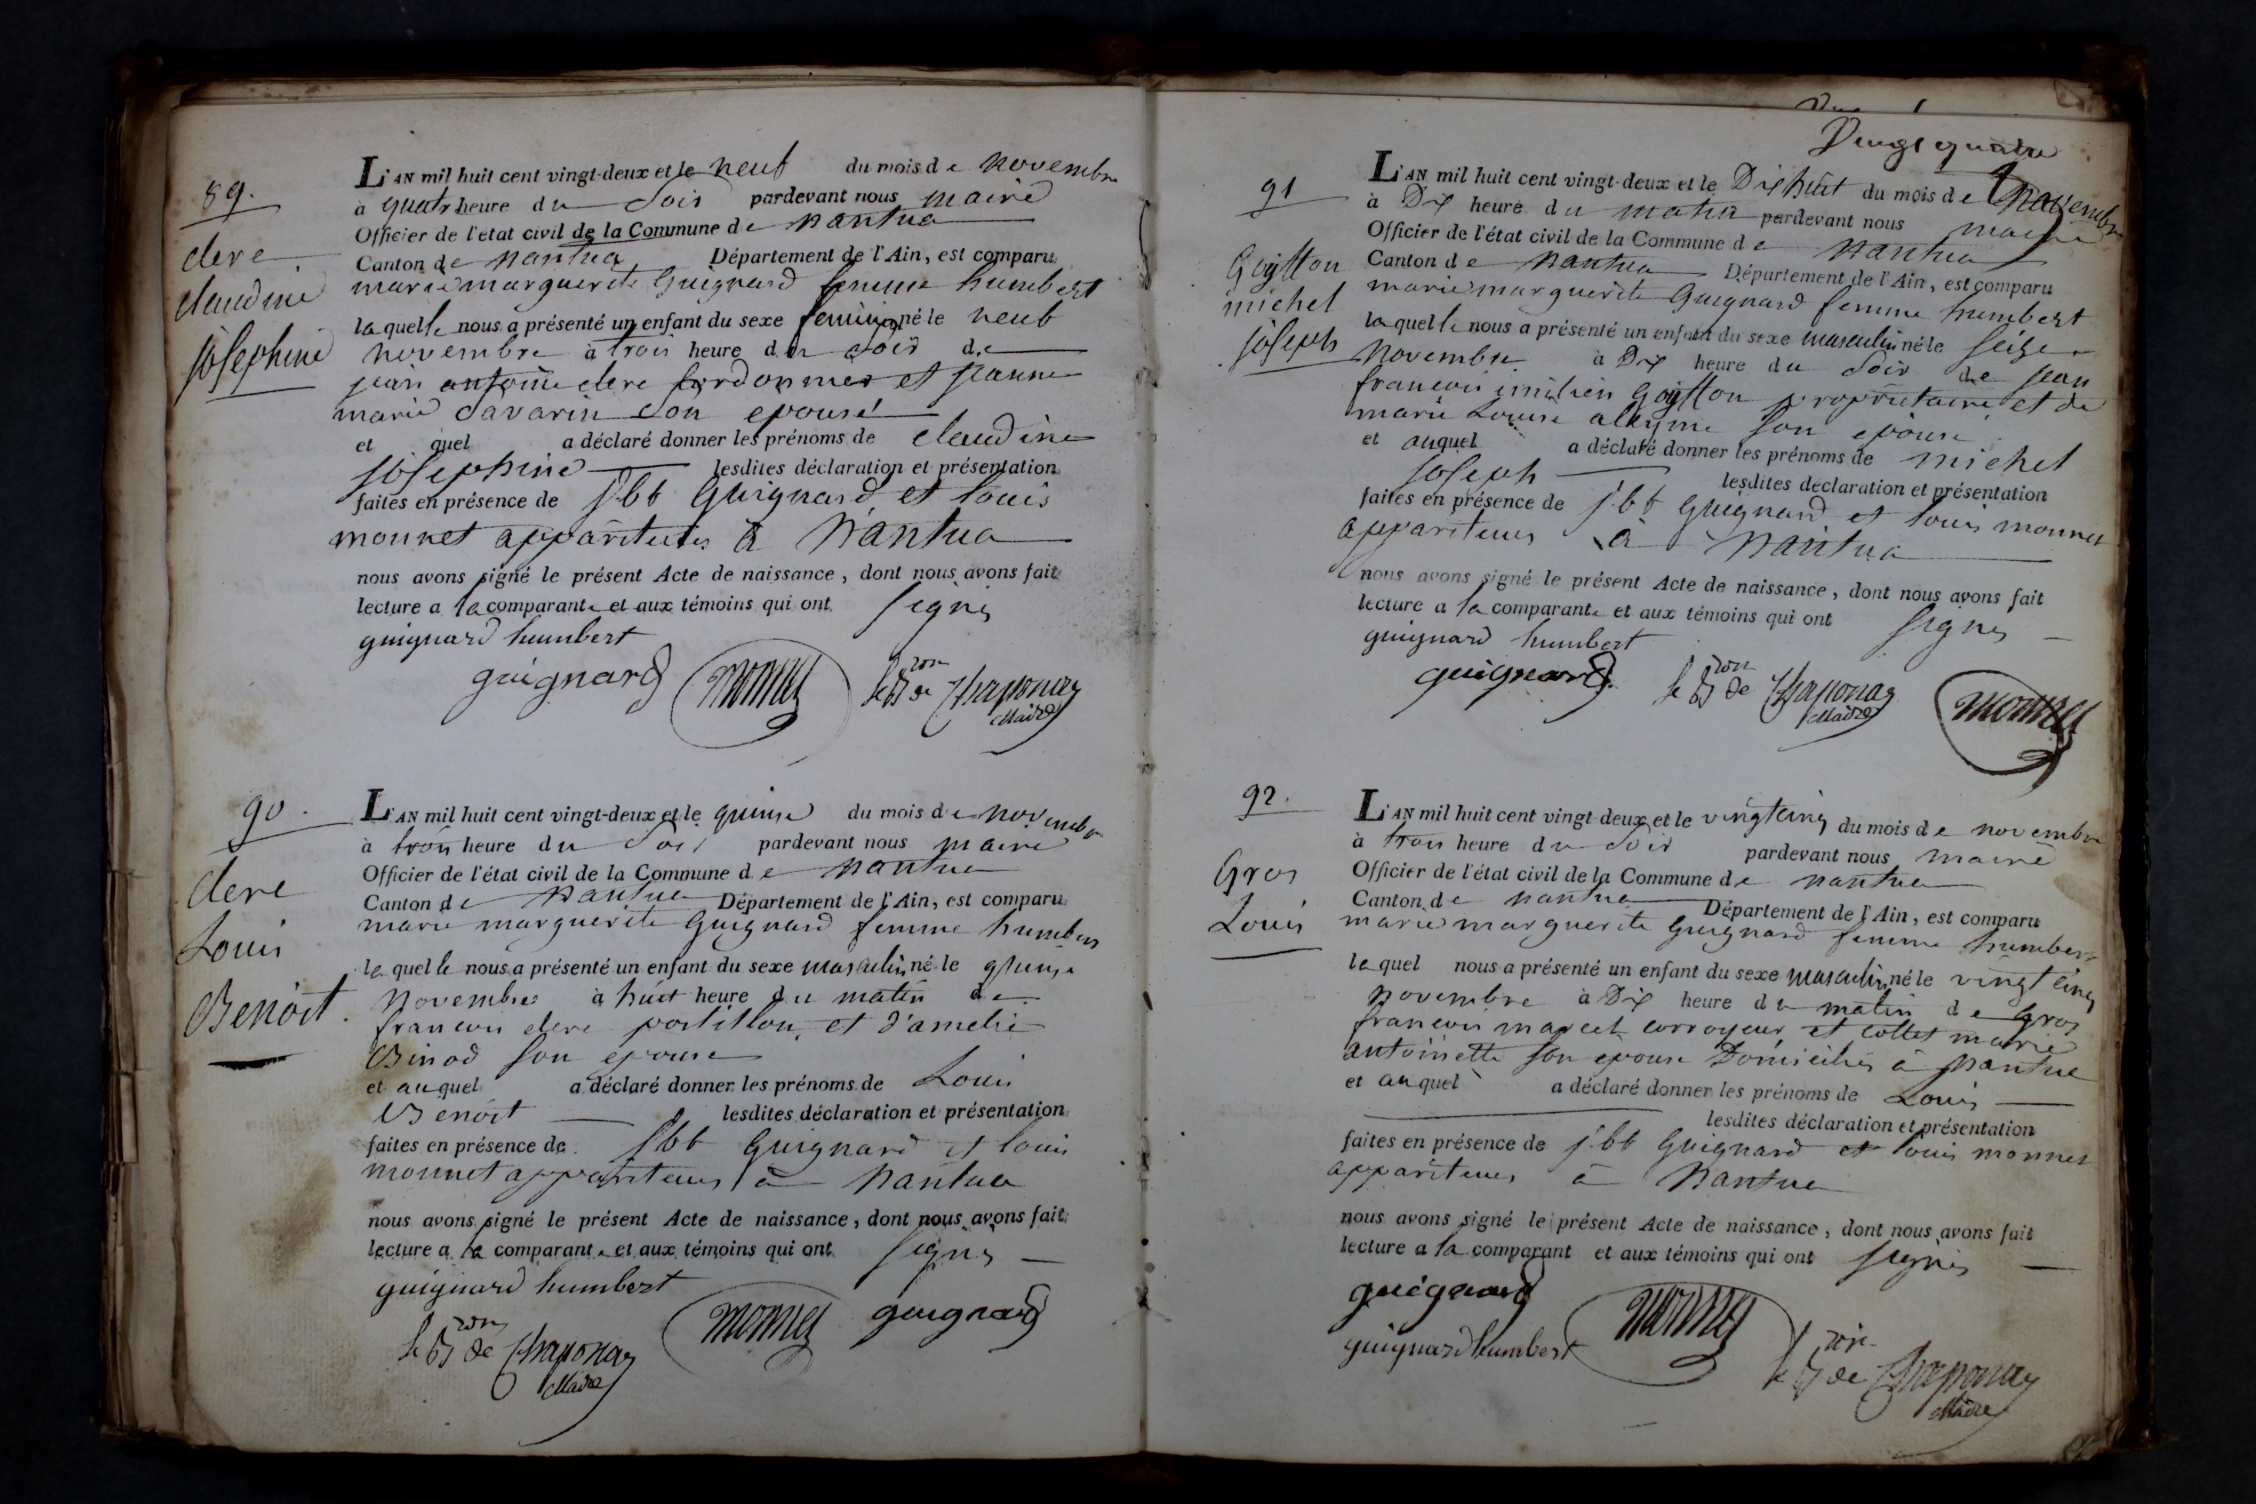 89.
clere
claudine
josephine
L'AN mil huit cent vingt-deux et le neuf du mois de novembre
à quatr heure du soir pardevant nous maire
Officier de l'etat civil de la Commune de nantua
Canton de nantua Département de l'Ain, est comparu
marie marguerite Guignard femme humbert
laquelle nous a présenté un enfant du sexe feminin né le neuf
novembre à trois heure du soir de
jean antoine clere cordonnier et jeanne
marie savarin son epouse
et quel a déclaré donner les prénoms de claudine
josephine lesdites déclaration et présentation
faites en présence de jbt Guignard et louis
monnet appariteurs à Nantua
nous avons signé le présent Acte de naissance, dont nous avons fait
lecture a la comparante et aux témoins qui ont signés
guignard humbert
guignard monnet le Bon de Chaponay
Maire
90.
clere
Louis
Benoit.
L'AN mil huit cent vingt-deux et le quinse du mois de novembre
à trois heure du soir pardevant nous maire
Officier de l'état civil de la Commune de nantua
Canton de nantua Département de l'Ain, est comparu
marie marguerite Guignard femme humbert
laquelle nous a présenté un enfant du sexe masculin né le quinse
novembre à huit heure du matin de
francois clere postillon et d'amelie
Binod son epouse
et auquel a déclaré donner les prénoms de Louis
Benoit lesdites déclaration et présentation
faites en présence de jbt Guignard et louis
monnet appariteurs à nantua
nous avons signé le présent Acte de naissance, dont nous avons fait
lecture a la comparante et aux témoins qui ont signés
guignard humbert
le Bon de Chaponay monnet guignard
Maire
Vingt quatre
91
Goyffon
michel
joseph
L'AN mil huit cent vingt-deux et le Dix huit du mois de novembre
à Dix heure du matin pardevant nous maire
Officier de l'état civil de la Commune de nantua
Canton de nantua Département de l'Ain, est comparu
marie marguerite Guignard femme humbert
laquelle nous a présenté un enfant du sexe masculin né le seize
novembre à Dix heure du soir de jean
francois Goyffon propriétaire et de
marie Louise son epouse
et auquel a déclaré donner les prénoms de michel
joseph lesdites déclaration et présentation
faites en présence de jbt Guignard et louis monnet
appariteurs à nantua
nous avons signé le présent Acte de naissance, dont nous avons fait
lecture a la comparante et aux témoins qui ont signés
guignard humbert
guignard le Bon de Chaponay monnet
Maire
92.
Gros
Louis
L'AN mil huit cent vingt-deux et le vingt cinq du mois de novembre
à trois heure du soir pardevant nous maire
Officier de l'état civil de la Commune de nantua
Canton de nantua Département de l'Ain, est comparu
marie marguerite Guignard femme humbert
laquel nous a présenté un enfant du sexe masculin né le vingt cinq
novembre à Dix heure du matin de Gros
francois marcel corroyeur et collet marie
antoinette son epouse Domiciliés à nantua
et auquel a déclaré donner les prénoms de Louis
lesdites déclaration et présentation
faites en présence de jbt Guignard et louis monnet
appariteurs à Nantua
nous avons signé le présent Acte de naissance, dont nous avons fait
lecture a la comparant et aux témoins qui ont signés
guignard
guignard humbert monnet le Bon de Chaponay
Maire